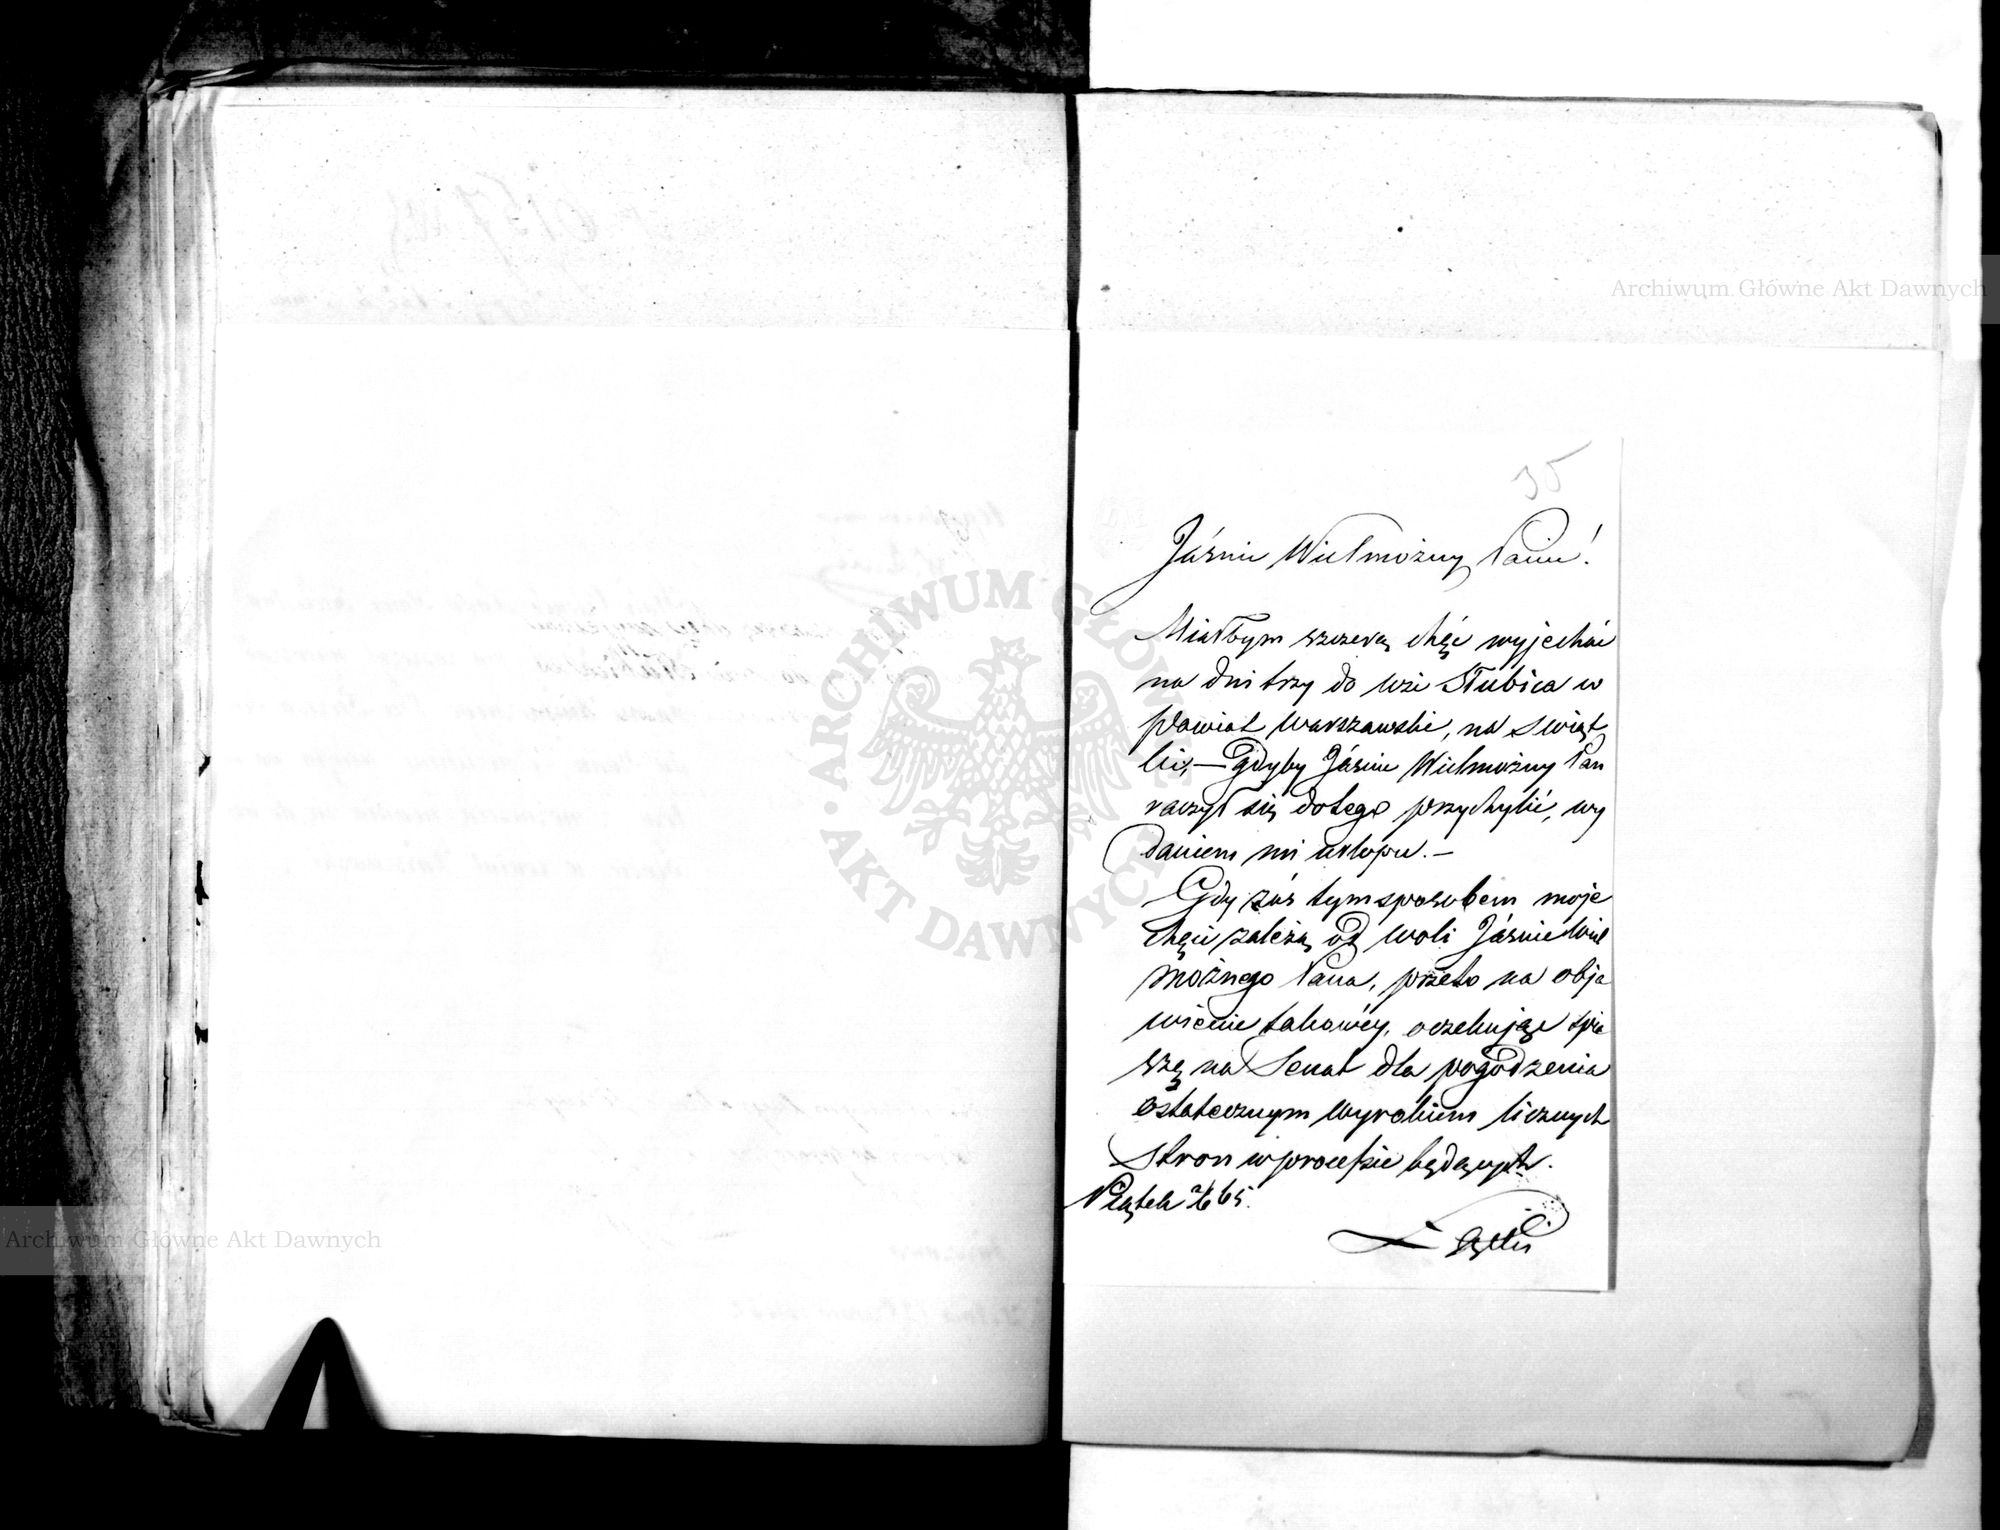 35
Jásnie Wielmożny Panie!
Miałbym szczerą chęć wyjechać
na dni trzy do wsi Słubica w
powiat warszawski, na Swiąt
ki, — Gdyby Jásnie Wielmożny Pan
raczył się dotego przychylić, wy
daniem mi urlopu. —
Gdy zás tym sposobem moje
chęci zależą od woli Jásnie Wiel
możnego Pana, przeto na obja
wienie takowéy, oczekując spie
szę na Senat dla pogodzenia
ostatecznym wyrokiem licznych
Stron w processie będących.
Piątek 2/6 65.
Archiwum Główne Akt Dawnych
Archiwum Główne Akt Dawnych
ARCHIWUM GŁÓWNE
AKT DAWNYCH